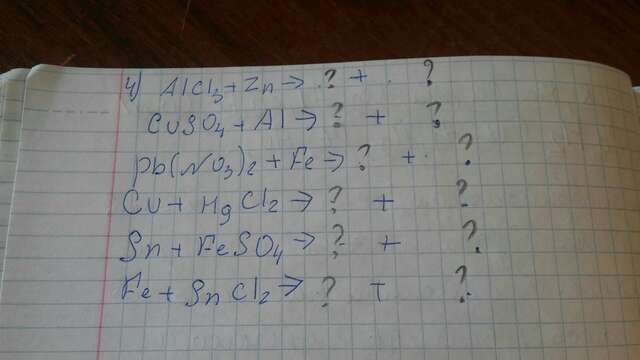 4) AlCl3 + Zn → ? + ?
CuSO4 + Al → ? + ?
pb(NO3)2 + Fe → ? + ?
Cu + HgCl2 → ? + ?
Sn + FeSO4 → ? + ?
Fe + SnCl2 → ? + ?